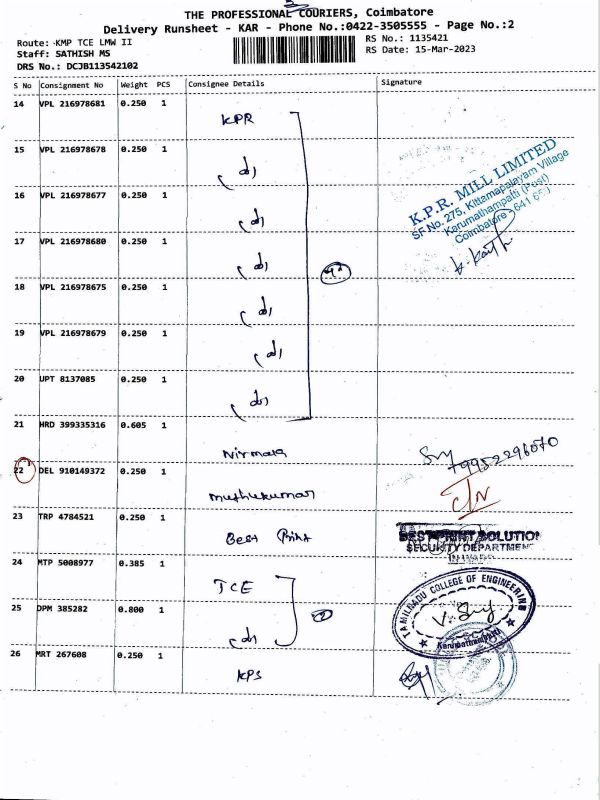 THE PROFESSIONAL COURIERS, Coimbatore
Delivery Runsheet - KAR - Phone No.:0422-3505555 - Page No.:2
Route: KMP TCE LMW II
RS No.: 1135421
Staff: SATHISH MS
RS Date: 15-Mar-2023
DRS No.: DCJB113542102
S No Consignment No Weight PCS Consignee Details Signature
14 VPL 216978681 0.250 1 KPR
15 VPL 216978678 0.250 1
16 VPL 216978677 0.250 1
17 VPL 216978680 0.250 1
18 VPL 216978675 0.250 1
19 VPL 216978679 0.250 1
20 UPT 8137085 0.250 1
K.P.R. MILL LIMITED
SF No. 275, Kittampalayam Village
Karumathampatti (Post)
Coimbatore
21 HRD 399335316 0.605 1 Nirmala 9952296070
22 DEL 910149372 0.250 1 Muthukumar
23 TRP 4784521 0.250 1 Best Print
BEST PRINT SOLUTION
SECURITY DEPARTMENT
24 MTP 5008977 0.385 1 TCE
25 DPM 385282 0.800 1
TAMILNADU COLLEGE OF ENGINEERING
Karumathampatti
26 MRT 267608 0.250 1 KPS